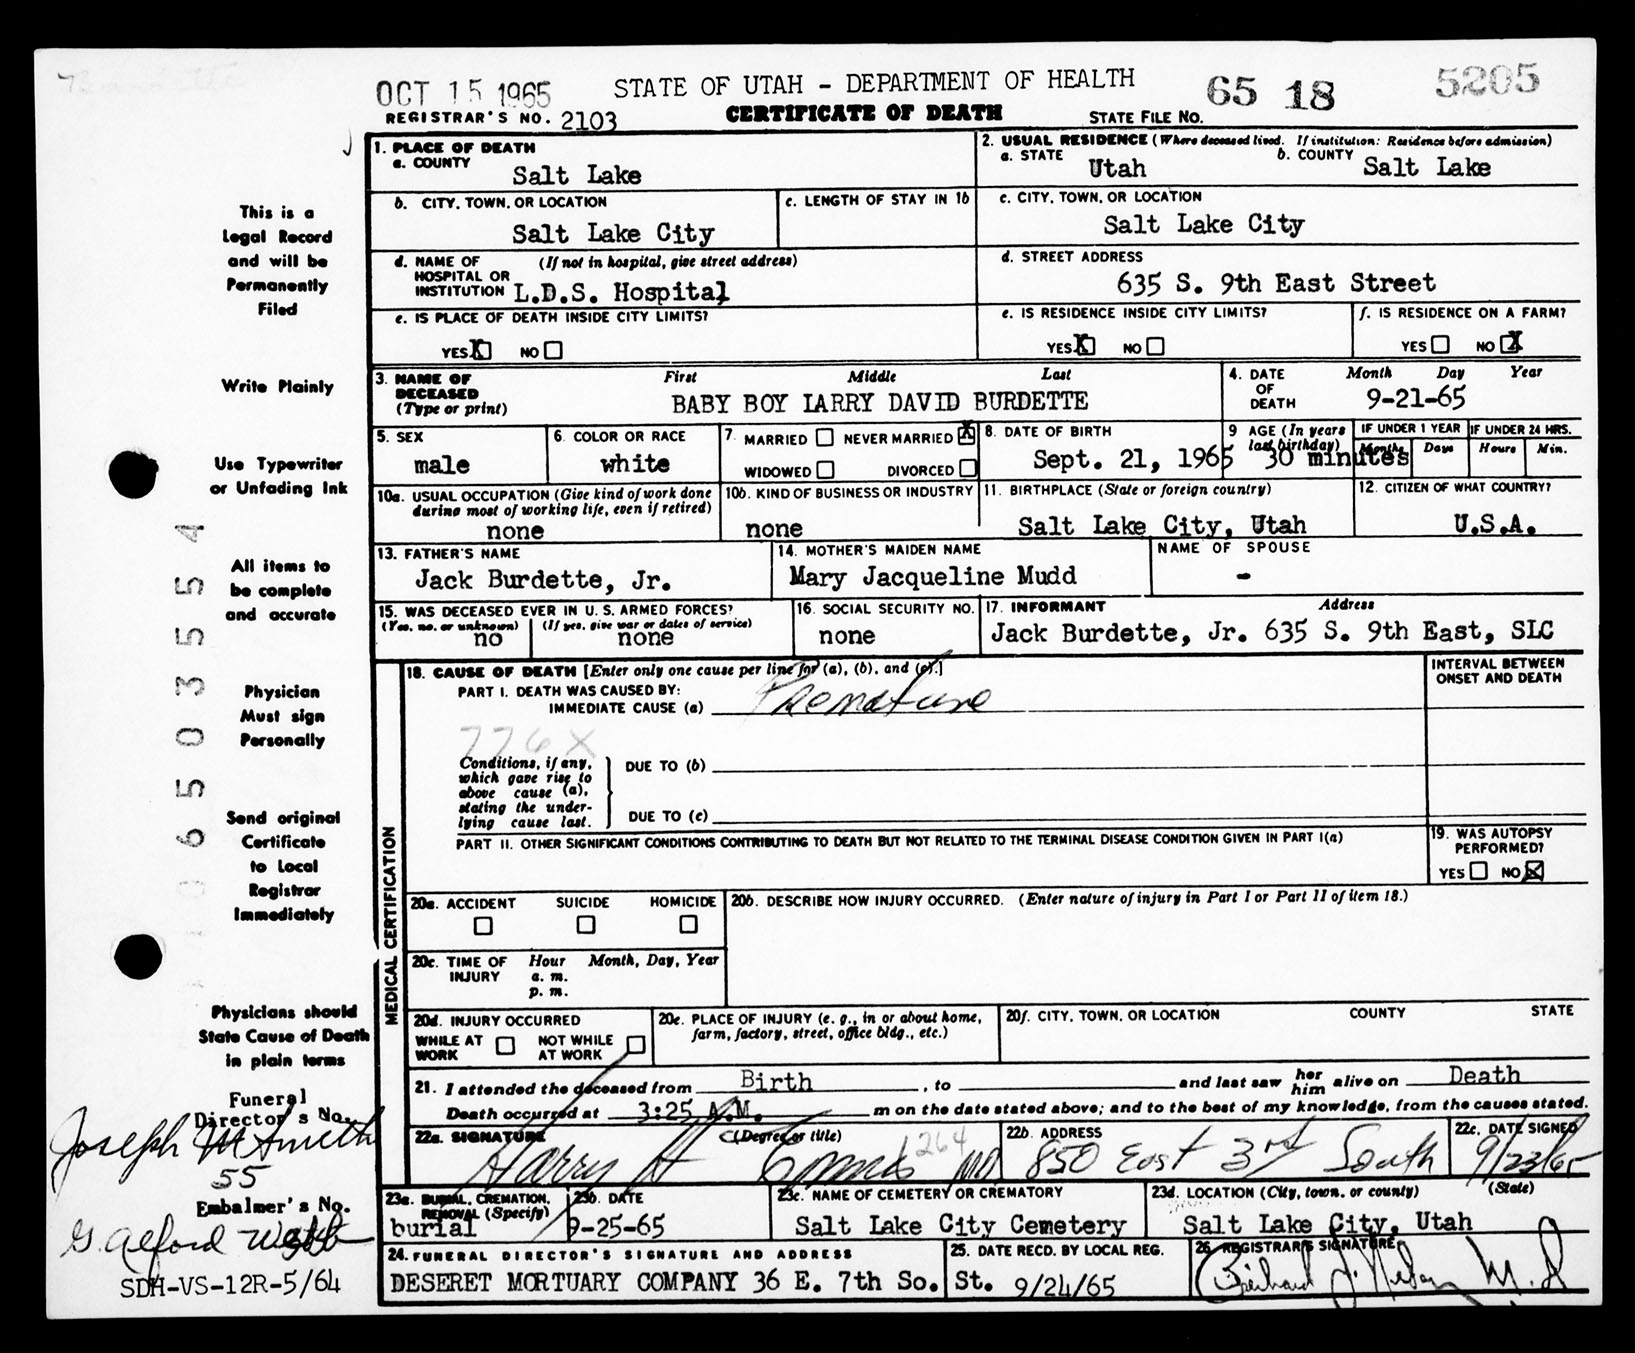 OCT 15 1965 STATE OF UTAH - DEPARTMENT OF HEALTH 65 18 5205
REGISTRAR'S NO. 2103 CERTIFICATE OF DEATH STATE FILE NO.
1. PLACE OF DEATH
a. COUNTY
Salt Lake
2. USUAL RESIDENCE (Where deceased lived. If institution: Residence before admission)
a. STATE Utah b. COUNTY Salt Lake
b. CITY, TOWN, OR LOCATION
Salt Lake City
c. LENGTH OF STAY IN 1b
c. CITY, TOWN, OR LOCATION
Salt Lake City
d. NAME OF HOSPITAL OR INSTITUTION (If not in hospital, give street address)
L.D.S. Hospital
d. STREET ADDRESS
635 S. 9th East Street
e. IS PLACE OF DEATH INSIDE CITY LIMITS?
YES X NO
e. IS RESIDENCE INSIDE CITY LIMITS?
YES X NO
f. IS RESIDENCE ON A FARM?
YES NO X
3. NAME OF DECEASED (Type or print) First Middle Last
BABY BOY LARRY DAVID BURDETTE
4. DATE OF DEATH Month Day Year
9-21-65
5. SEX
male
6. COLOR OR RACE
white
7. MARRIED NEVER MARRIED X
WIDOWED DIVORCED
8. DATE OF BIRTH
Sept. 21, 1965
9 AGE (In years last birthday) IF UNDER 1 YEAR IF UNDER 24 HRS.
Months Days Hours Min.
30 minutes
10a. USUAL OCCUPATION (Give kind of work done during most of working life, even if retired)
none
10b. KIND OF BUSINESS OR INDUSTRY
none
11. BIRTHPLACE (State or foreign country)
Salt Lake City, Utah
12. CITIZEN OF WHAT COUNTRY?
U.S.A.
13. FATHER'S NAME
Jack Burdette, Jr.
14. MOTHER'S MAIDEN NAME
Mary Jacqueline Mudd
NAME OF SPOUSE
-
15. WAS DECEASED EVER IN U.S. ARMED FORCES?
(Yes, no, or unknown) (If yes, give war or dates of service)
no none
16. SOCIAL SECURITY NO.
none
17. INFORMANT Address
Jack Burdette, Jr. 635 S. 9th East, SLC
18. CAUSE OF DEATH [Enter only one cause per line for (a), (b), and (c).]
INTERVAL BETWEEN ONSET AND DEATH
PART I. DEATH WAS CAUSED BY:
IMMEDIATE CAUSE (a) Premature
776X
Conditions, if any, which gave rise to above cause (a), stating the underlying cause last.
DUE TO (b)
DUE TO (c)
PART II. OTHER SIGNIFICANT CONDITIONS CONTRIBUTING TO DEATH BUT NOT RELATED TO THE TERMINAL DISEASE CONDITION GIVEN IN PART I(a)
19. WAS AUTOPSY PERFORMED?
YES NO X
MEDICAL CERTIFICATION
20a. ACCIDENT SUICIDE HOMICIDE
20b. DESCRIBE HOW INJURY OCCURRED. (Enter nature of injury in Part I or Part II of item 18.)
20c. TIME OF INJURY Hour Month, Day, Year
a. m.
p. m.
20d. INJURY OCCURRED
WHILE AT WORK NOT WHILE AT WORK
20e. PLACE OF INJURY (e. g., in or about home, farm, factory, street, office bldg., etc.)
20f. CITY, TOWN, OR LOCATION COUNTY STATE
21. I attended the deceased from Birth , to and last saw her him alive on Death
Death occurred at 3:25 A.M. m on the date stated above; and to the best of my knowledge, from the causes stated.
22a. SIGNATURE (Degree or title) 1264
Harry H MD
22b. ADDRESS
850 East 3rd South
22c. DATE SIGNED
9/23/65
23a. BURIAL, CREMATION, REMOVAL (Specify)
burial
23b. DATE
9-25-65
23c. NAME OF CEMETERY OR CREMATORY
Salt Lake City Cemetery
23d. LOCATION (City, town, or county) (State)
Salt Lake City, Utah
24. FUNERAL DIRECTOR'S SIGNATURE AND ADDRESS
DESERET MORTUARY COMPANY 36 E. 7th So. St.
25. DATE RECD. BY LOCAL REG.
9/24/65
26. REGISTRAR'S SIGNATURE
M.D
This is a
Legal Record
and will be
Permanently
Filed
Write Plainly
Use Typewriter
or Unfading Ink
All items to
be complete
and accurate
Physician
Must sign
Personally
Send original
Certificate
to Local
Registrar
Immediately
Physicians should
State Cause of Death
in plain terms
Funeral
Director's No.
Joseph M Smith
55
Embalmer's No.
G. Alford
SDH-VS-12R-5/64
9650 35554